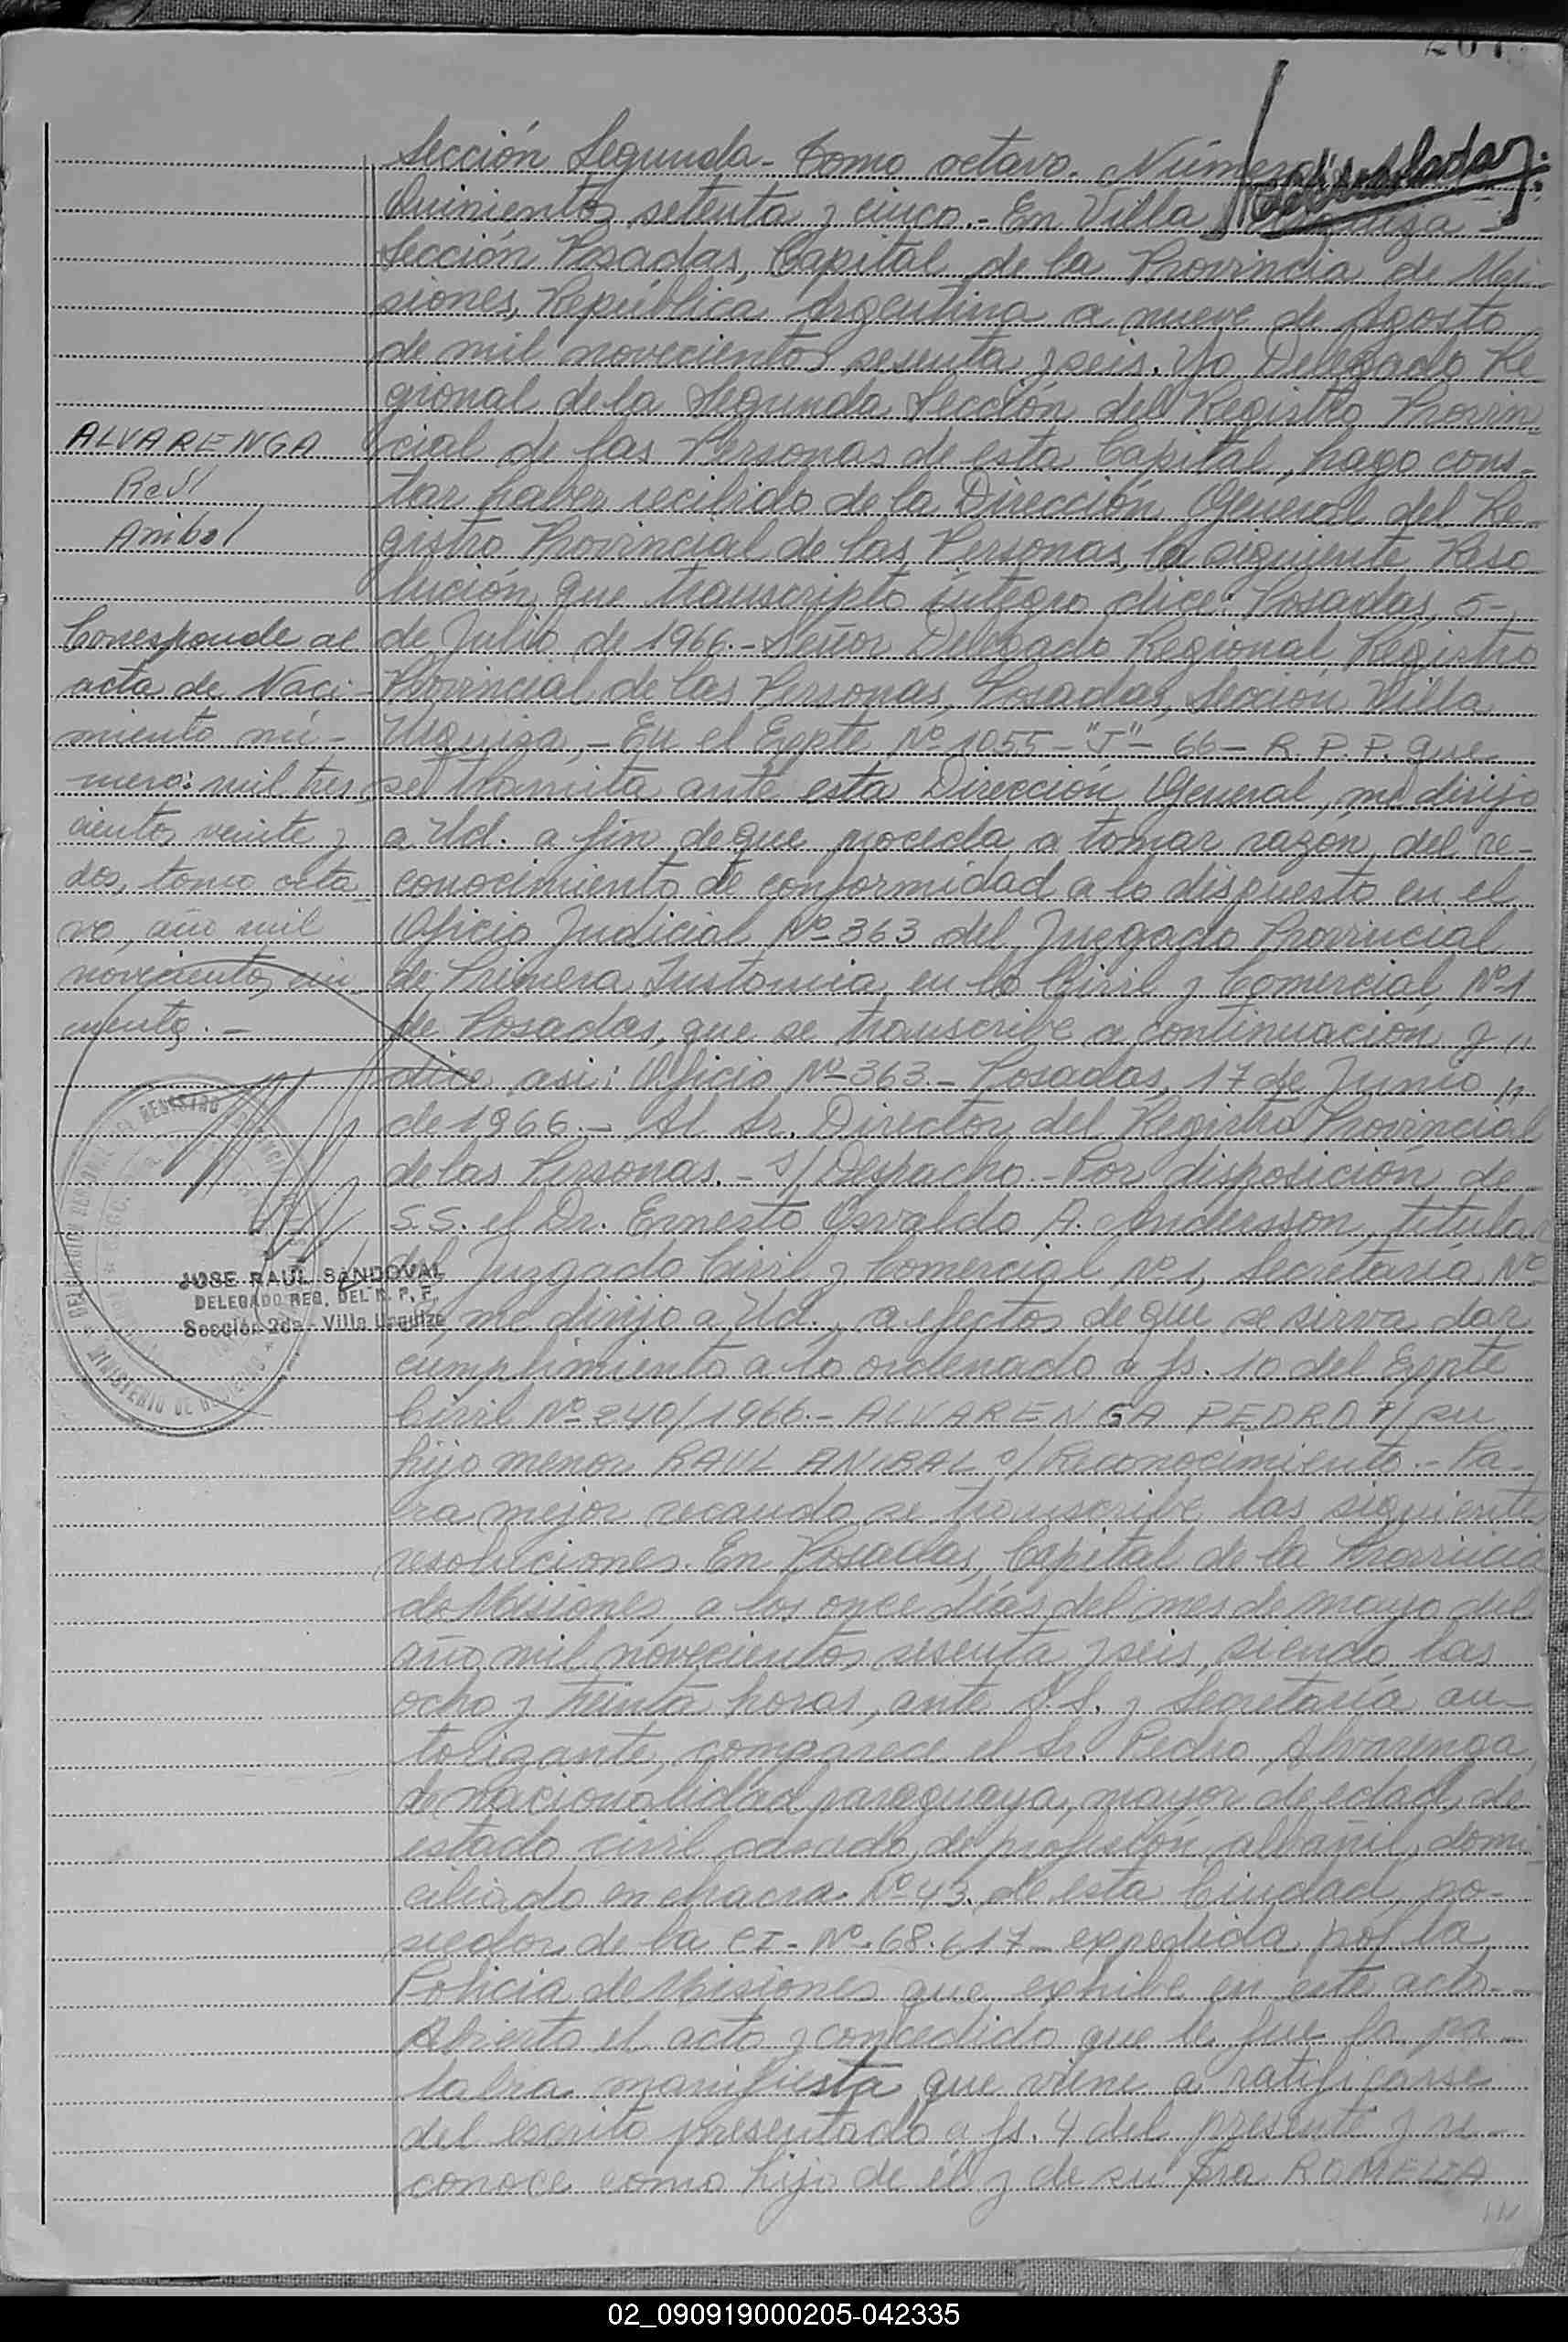 Sección Segunda - Tomo octavo. Número
Quinientos setenta y cinco.- En Villa
Sección Posadas, Capital de la Provincia de Mi-
siones, República Argentina a nueve de Agosto
de mil novecientos sesenta y seis. Yo Delegado Re-
gional de la Segunda Sección del Registro Provin-
cial de las Personas de esta Capital, hago cons-
tar haber recibido de la Dirección General del Re-
gistro Provincial de las Personas, la siguiente Reso-
lución que transcripto íntegro dice: Posadas, 5-
de Julio de 1966.- Señor Delegado Regional Registro
Provincial de las Personas, Posadas, Sección Villa
Urquiza.- En el Expte Nº 1055-"J"- 66- R.P.P. que
se tramita ante esta Dirección General, me dirijo
a Ud. a fin de que proceda a tomar razón del re-
conocimiento de conformidad a lo dispuesto en el
Oficio Judicial Nº 363 del Juzgado Provincial
de Primera Instancia en lo Civil y Comercial Nº 1
de Posadas, que se transcribe a continuación y "
dice así: Oficio Nº 363.- Posadas, 17 de Junio "
de 1966.- Al Sr. Director del Registro Provincial
de las Personas.- S/Despacho.- Por disposición de
S.S. el Dr. Ernesto Osvaldo A. Andersson, titular
del Juzgado Civil y Comercial Nº 1, Secretaría Nº
me dirijo a Ud., a efectos de que se sirva dar
cumplimiento a lo ordenado a fs. 10 del Expte
Civil Nº 240/1966.- ALVARENGA PEDRO P/ su
hijo menor RAUL ANIBAL s/Reconocimiento.- Pa-
ra mejor recaudo se transcribe las siguientes
resoluciones. En Posadas, Capital de la Provincia
de Misiones, a los once días del mes de mayo del
año mil novecientos sesenta y seis, siendo las
ocho y treinta horas, ante S.S. y Secretaría au-
torizante, comparece el Sr. Pedro Alvarenga,
de nacionalidad paraguaya, mayor de edad, de
estado civil casado, de profesión albañil, domi-
ciliado en chacra Nº 43 de esta Ciudad, po-
seedor de la CI- Nº 68.617- expedida por la
Policía de Misiones que exhibe en este acto.-
Abierto el acto y concedido que le fue la pa-
labra manifiesta que viene a ratificarse
del escrito presentado a fs. 4 del presente y re-
conoce como hijo de él y de su Sra ROMELIA
ALVARENGA
Raúl
Anibal
Corresponde al
acta de Naci-
miento nú-
mero: mil tres
cientos veinte y
dos, tomo octa-
vo, año mil
novecientos cin-
cuenta.-
JOSE RAUL SANDOVAL
DELEGADO REG. DEL R. P. P.
Sección 2da - Villa Urquiza
02_090919000205-042335